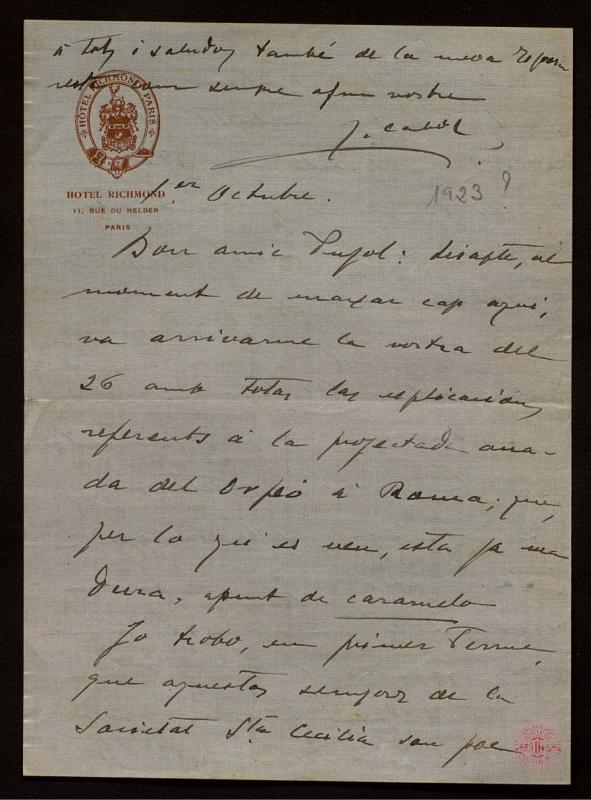 à tots i saludos també de la meva
resta com sempre afm vostre
J. Cabot
HÔTEL RICHMOND PARIS
HOTEL RICHMOND
11, RUE DU HELDER
PARIS
1er Octubre.
1923?
Bon amic Pujol: disapte, al
moment de marxar cap aquí,
va arrivarme la vostra del
26 amb totas las esplicacions
referents à la projectada ana-
da del Orfeó à Roma; que,
per lo que es veu, esta ja ma
dura, apunt de caramelo
Jo trobo, en primer terme,
que aquestos senyors de la
Societat Sta Cecilia son poc